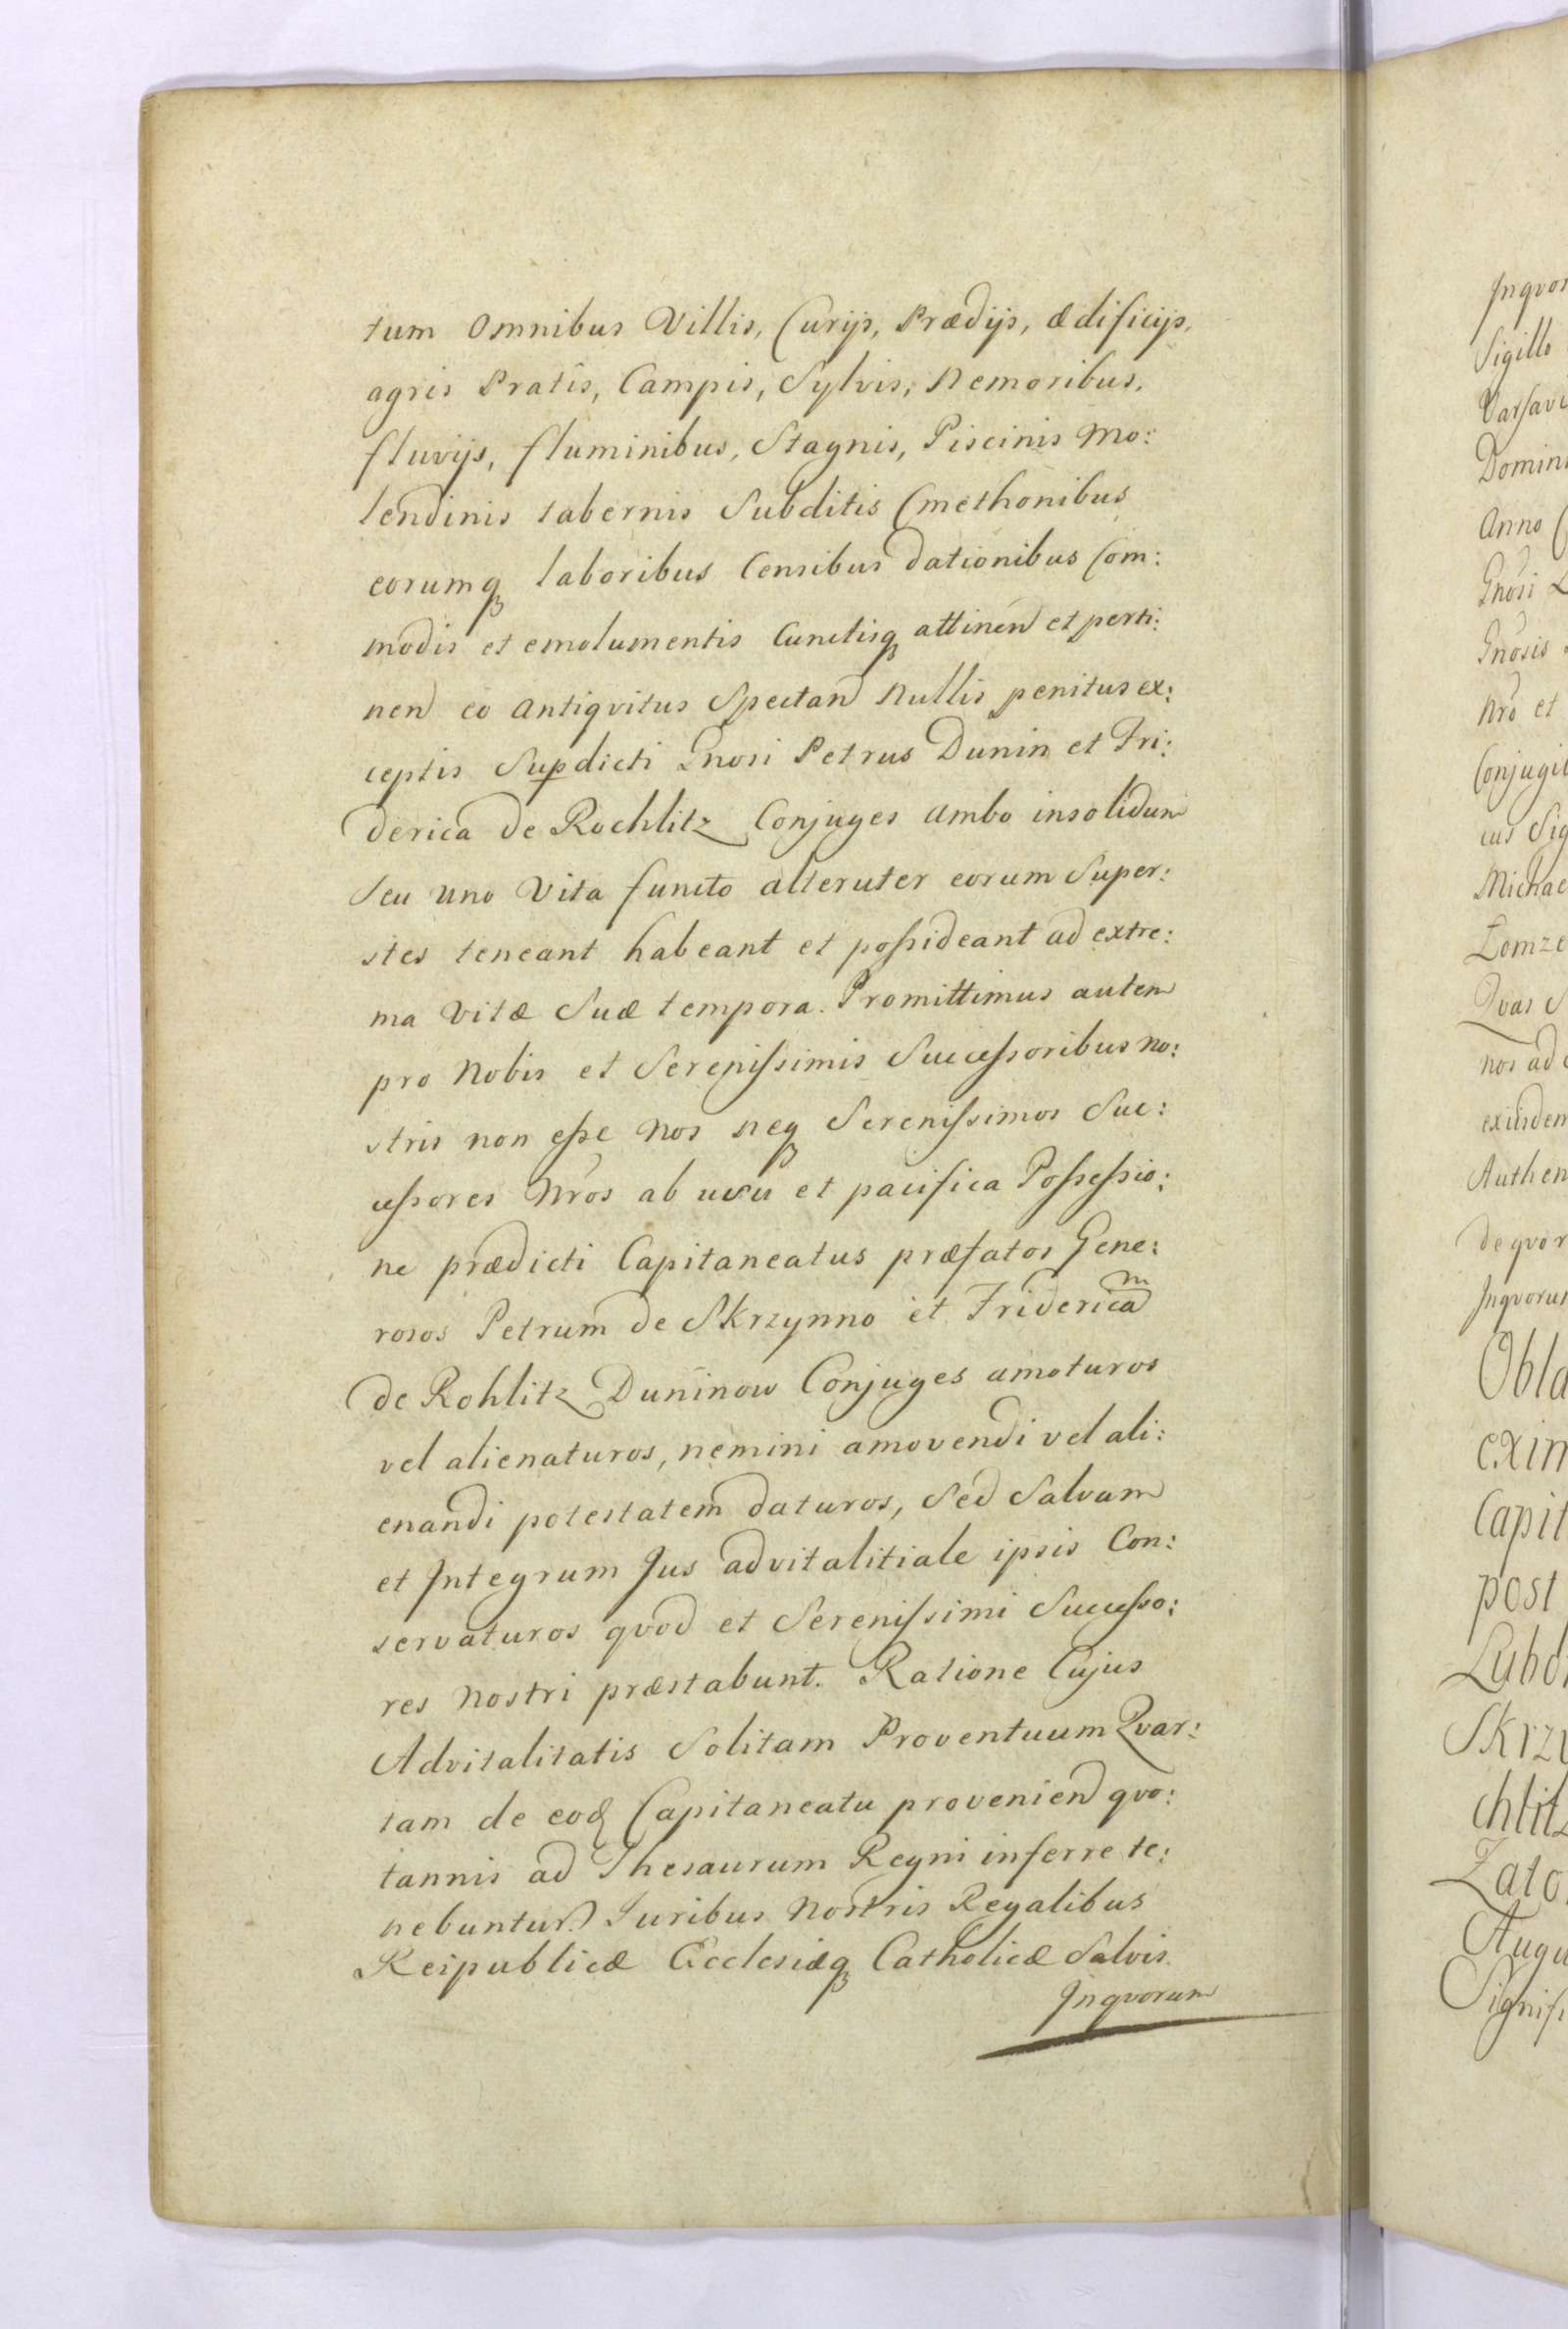 tum Omnibus Villis, Curijs, Prædijs, ædificijs,
agris Pratis, Campis, Sylvis, Nemoribus,
fluvijs, fluminibus, Stagnis, Piscinis Mo:
lendinis tabernis Subditis Cmethonibus
eorumq laboribus Censibus dationibus Com:
modis et emolumentis Cunctisq attinen et perti:
nen eo antiqvitus Spectan Nullis penitus ex:
ceptis Supdicti Gnosi Petrus Dunin et Fri:
derica de Rochlitz Conjuges ambo insolidum
Seu uno Vita functo alteruter eorum Super:
stes teneant habeant et possideant ad extre:
ma Vitæ Suæ tempora. Promittimus autem
pro Nobis et Serenissimis Successoribus no:
stris non esse Nos neq Serenissimos Suc:
cessores Nros ab usu et pacifica Possessio:
ne prædicti Capitaneatus præfatos Gene:
rosos Petrum de Skrzynno et Fridericam
de Rohlitz Duninow Conjuges amoturos
vel alienaturos, nemini amovendi vel ali:
enandi potestatem daturos, Sed Salvum
et Integrum Jus advitalitiale ipsis Con:
servaturos qvod et Serenissimi Successo:
res Nostri præstabunt. Ratione Cujus
Advitalitatis Solitam Proventuum Qvar:
tam de eod Capitaneatu provenien qvo:
tannis ad Thesaurum Regni inferre te:
nebuntur. Juribus Nostris Regalibus
Reipublicæ Ecclesiæq Catholicæ Salvis.
Inqvorum
Sigillo
Anno
Gnosis
Nro et
Michae
Lomze
nos ad
Authen
Capit
post
Skrz
chlitz
Augu